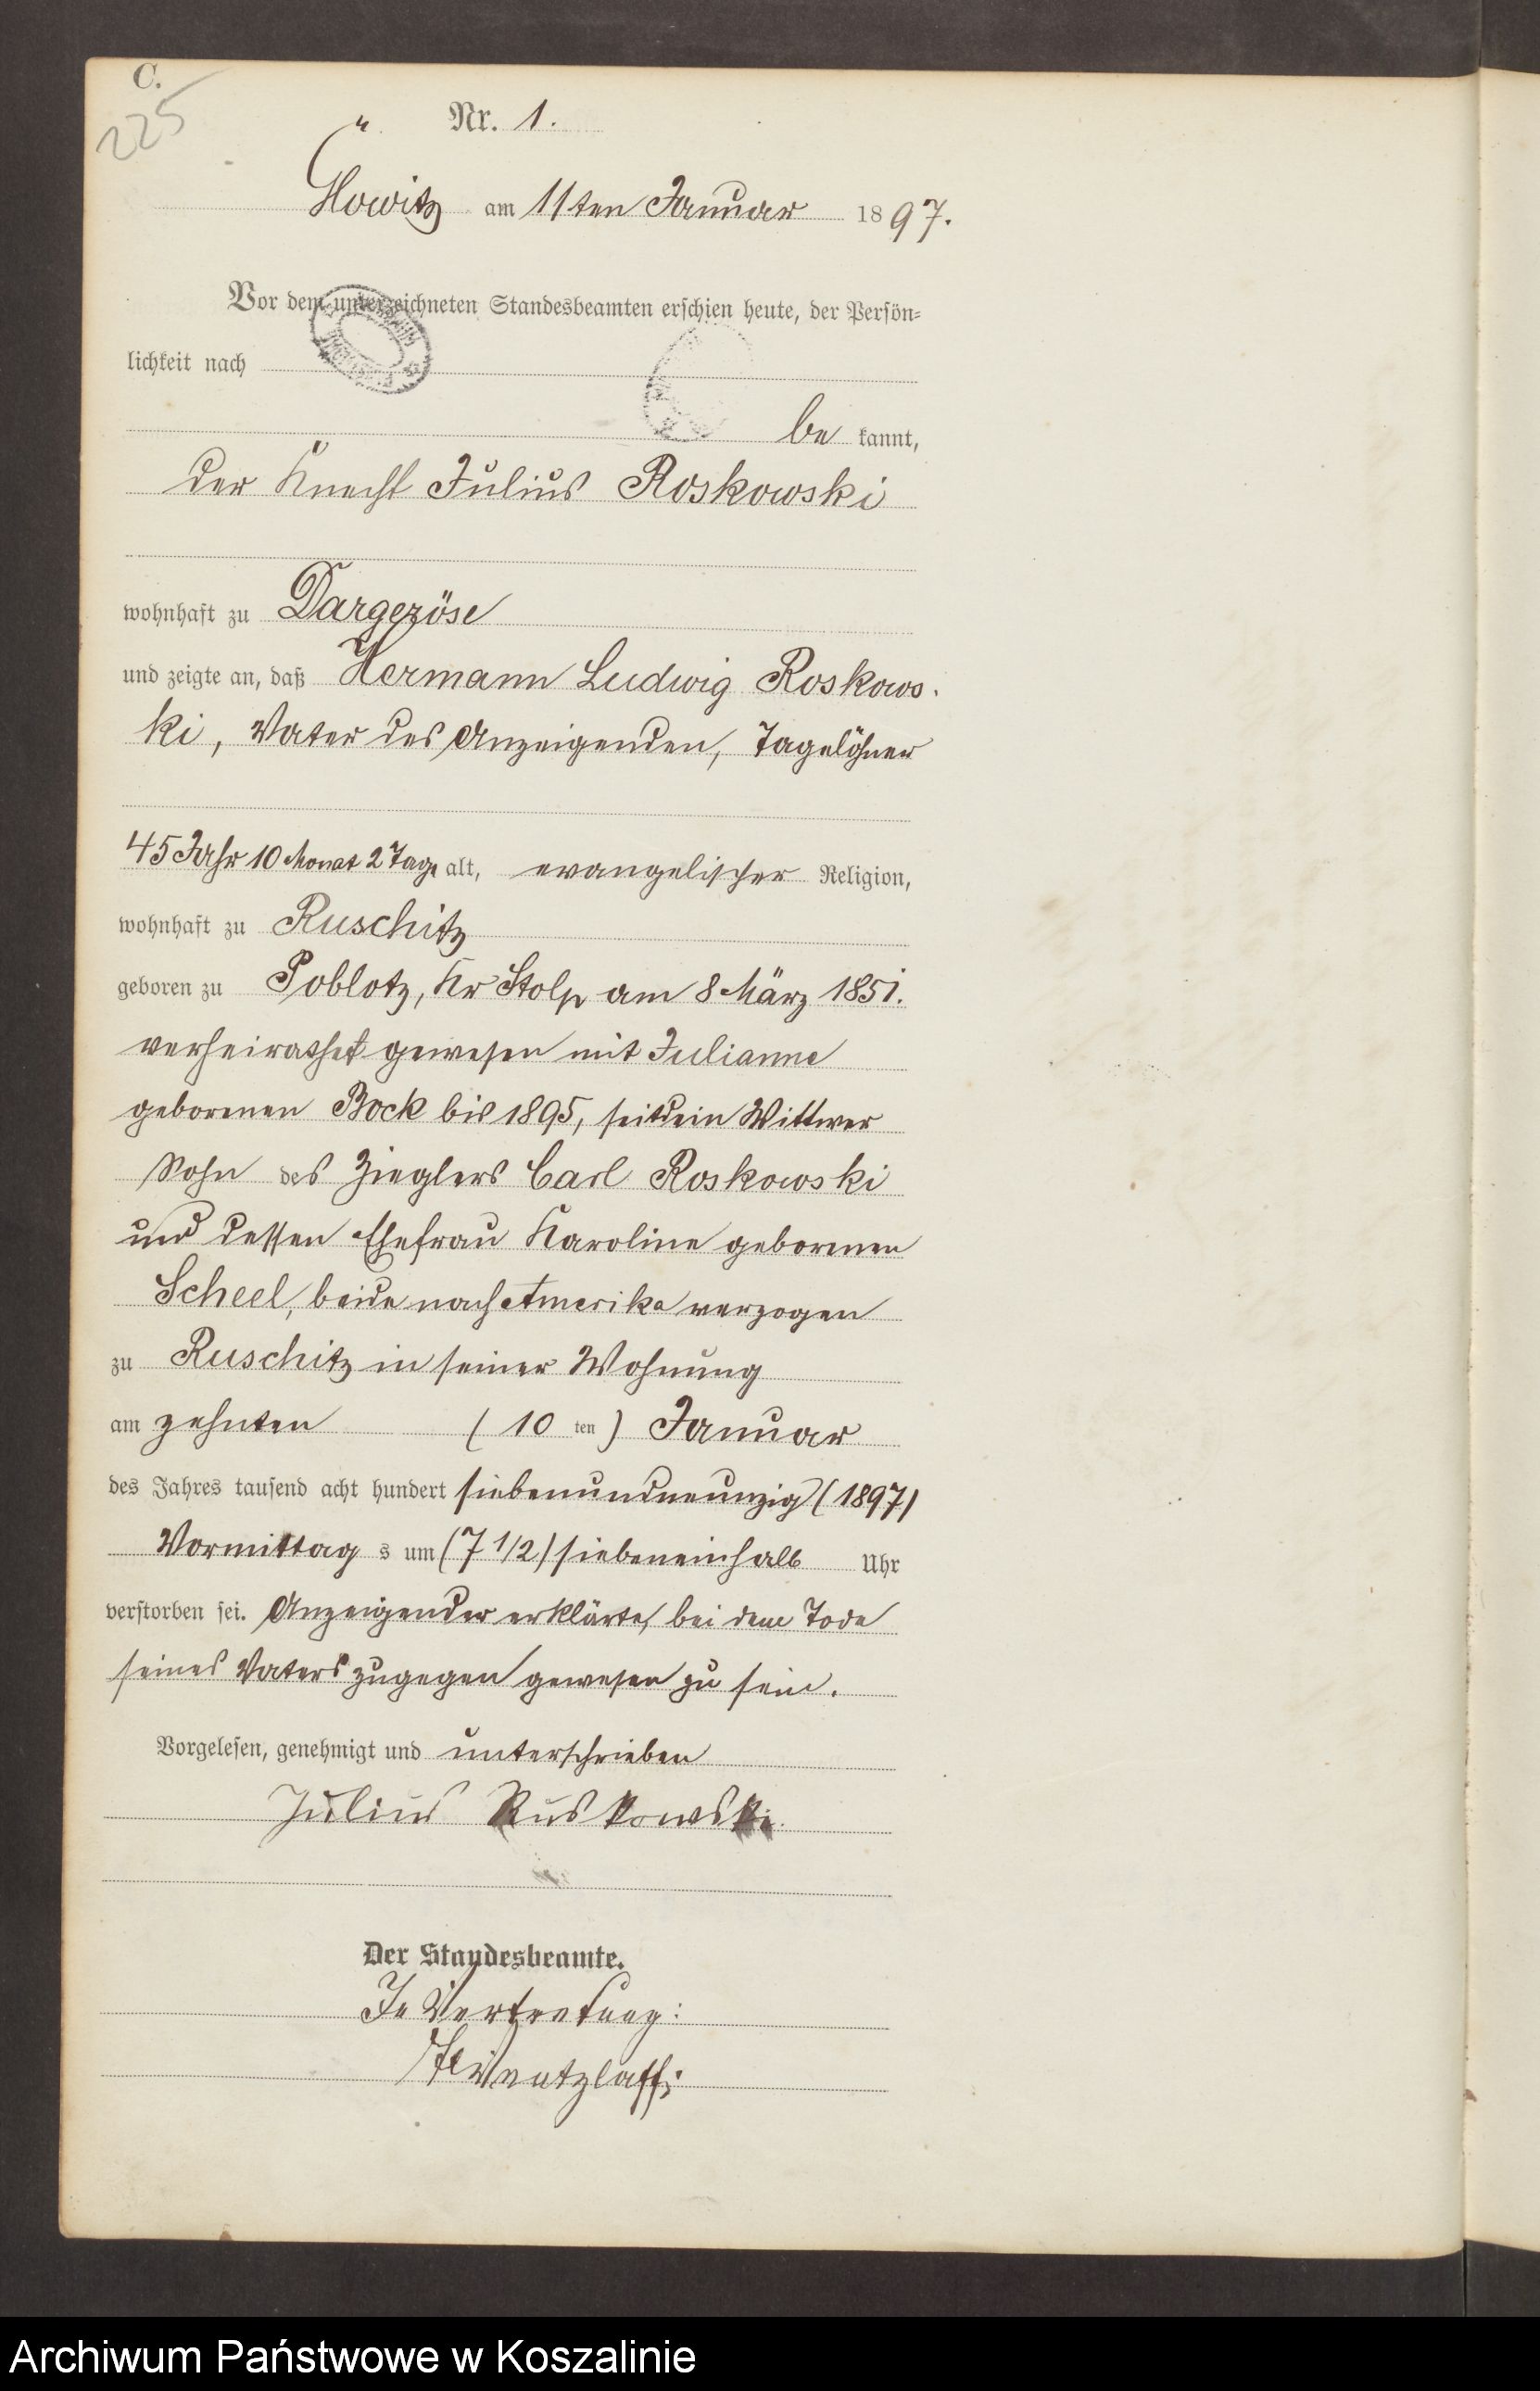 C.
225
Nr. 1.
Glowitz am 11ten Januar 1897.
Vor dem unterzeichneten Standesbeamten erschien heute, der Persön=
lichkeit nach
be kannt,
der Knecht Julius Roskowski
wohnhaft zu Dargeröse
und zeigte an, daß Hermann Ludwig Roskows-
ki, Vater des Anzeigenden, Tagelöhner
45 Jahr 10 Monat 2 Tage alt, evangelischer Religion,
wohnhaft zu Ruschitz
geboren zu Poblotz, Kr Stolp am 8 März 1851.
verheirathet gewesen mit Julianne
geborenen Bock bis 1895, seitdem Wittwer
Sohn des Zieglers Carl Roskowski
und dessen Ehefrau Karoline geborenen
Scheel, beide nach Amerika verzogen
zu Ruschitz in seiner Wohnung
am zehnten (10 ten) Januar
des Jahres tausend acht hundert siebenundneunzig (1897)
Vormittag s um (7 1/2) siebeneinhalb Uhr
verstorben sei. Anzeigender erklärte, bei dem Tode
seines Vaters zugegen gewesen zu sein.
Vorgelesen, genehmigt und unterschrieben
Julius Ruskowski.
Der Standesbeamte.
In Vertretung:
Wentzlaff.
Archiwum Państwowe w Koszalinie